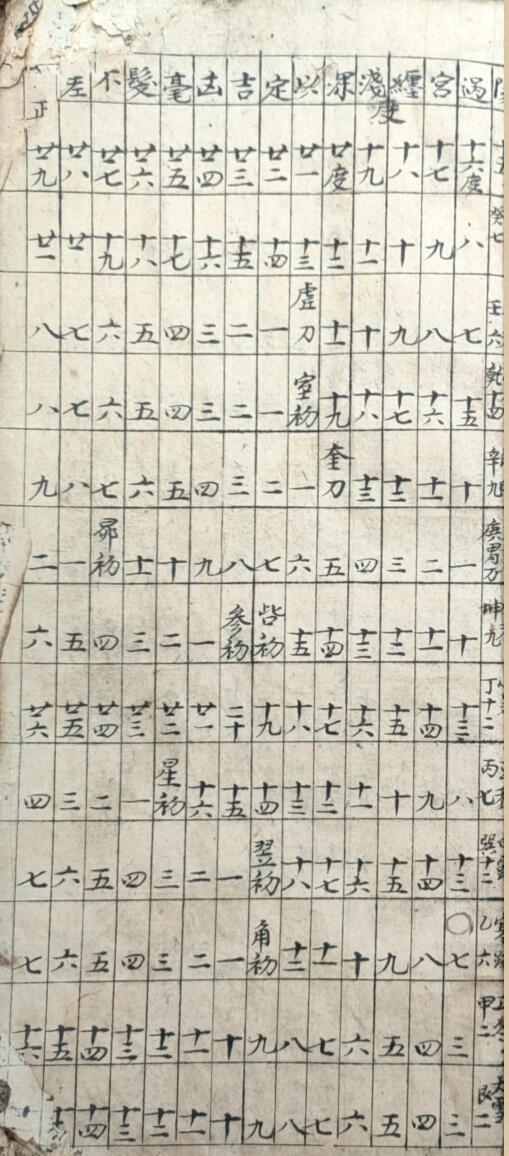 十五癸七壬六乾十四辛九庚胃刀坤九丁十二丙七巽十二乙六甲二大雪艮二
過十六度八七十五十一十十三八十三七三三
宮十七九八十六十一二十一十四九十四八四四
纏十八十九十七十二三十二十五十十五九五五
淺度十九十一十十八十三四十三十六十一十六十六六
深廿度十二十一十九奎刀五十四十七十二十七十一七七
以廿一十三虚刀室初一六十五十八十三十八十二八八
定廿二十四一一二七觜初十九十四翌初角初九九
吉廿三十五二二三八参初二十十五一一十十
凶廿四十六三三四九一廿一十六二二十一十一
毫廿五十七四四五十二廿二星初三三十二十二
髮廿六十八五五六十一三廿三一四四十三十三
不廿七十九六六七昴初四廿四二五五十四十四
差廿八廿七七八一五廿五三六六十五十五
正廿九廿一八八九二六廿六四七七十六